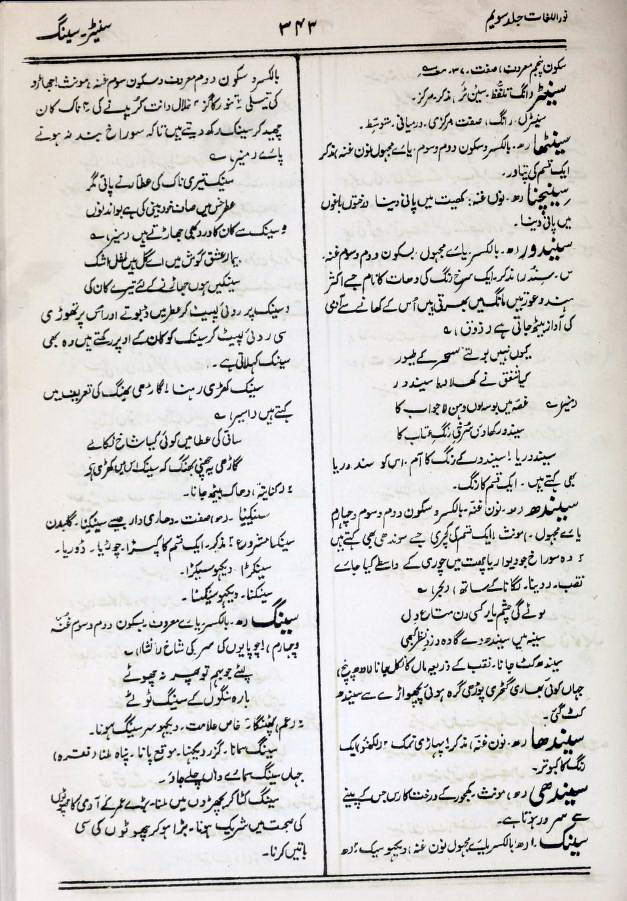 نور اللغات جلد سویم
۳۴۳
سنیٹر۔ سینگ
سکون پنجم معروف، صفت۔ ۳۷
سینٹر رانگ تلفظ۔ سین ٹر، مذکر۔ مرکز۔
سینٹرل۔ رانگ، صفت مرکزی۔ درمیانی۔ متوسط۔
سینٹھا (ھ۔ بالکسر و سکون دوم و سوم۔ یائے مجہول نون غنہ) مذکر
ایک قسم کی
سینچنا (ھ۔ نون غنہ) کھیت میں پانی دینا درختوں باغوں
میں پانی دینا۔
سیندور (ھ۔ بالکسر یائے مجہول۔ سکون دوم و سوم غنہ۔
س۔ سندر) مذکر۔ ایک سرخ رنگ کی دھات کا نام جسے اکثر
ہندو عورتیں مانگ میں بھرتی ہیں اس کے کھانے سے آدمی
کی آواز بیٹھ جاتی ہے (ذوق) ؎
کیوں نہیں بولتے سحر کے طیور
کیا شفق نے کھلا دیا سیندور
غصہ میں بوسہ دوں دہن لاجواب کا
سیندور کھا دی سرخی رنگ عتاب کا
سیندریا ! سیندور کے رنگ کا آم۔ اس کو سندوریا
بھی کہتے ہیں۔ ایک قسم کا رنگ۔
سیندھ (ھ۔ نون غنہ۔ بالکسر و سکون دوم و سوم و چہارم
یائے مجہول۔) مونث ! ایک قسم کی کچری جسے سوندھی بھی کہتے ہیں
؛ وہ سوراخ جو دیوار یا چھت میں چوری کے واسطے کیا جائے
نقب۔ (دینا۔ لگانا کے ساتھ) (بحر) ؎
لوٹے گی چشم یار کسی دن متاع دل
سینہ میں سیندھ دے گا وہ دزد نظر کبھی
سیندھ کٹ جانا۔ نقب کے ذریعہ مال کا نکل جانا (اودھ پنچ)
جہاں کوئی بھاری گٹھری پوڑھی گرہ ہوئی پچھواڑے سے سیندھ
کٹ گئی۔
سیندھا (ھ۔ نون غنہ) مذکر ! پہاڑی نمک ؛ (لکھنؤ) ایک
رنگ کا کبوتر۔
سیندھی (ھ) مونث۔ کھجور کے درخت کا رس جس کے پینے
سے سرور ہوتا ہے۔
سینک۔ (ھ۔ بالکسر یائے مجہول نون غنہ) دیکھو سیک ؛ (ھ
بالکسر و سکون دوم معروف و سکون سوم غنہ) مونث ! جھاڑو
کی تیلی ؛ تنور کا گز ؛ خلال دانت کریدنے کی ؛ ناک کان
چھید کر سینک رکھ دیتے ہیں تاکہ سوراخ بند نہ ہونے
پائے (منیر) ؎
سینک تیری ناک کی عطار نے پائی مگر
عطر خس میں صاف خود بینی کی ہے بو اندنوں
؛ سینک سے کان کا درد بھی جھاڑتے ہیں (منیر) ؎
بیمار عشق گوش میں اے گل ہیں لعل اشک
سینکیں ہوں جھاڑنے کے لئے تیرے کان کی
؛ سینک پر روئی لپیٹ کر عطر میں ڈبوتے اور اس پر تھوڑی
سی روئی لپیٹ کر سینک کو کان کے اوپر رکھتے ہیں وہ بھی
سینک کہلاتی ہے۔
سینک کھڑی رہنا ! گاڑھی بھنگ کی تعریف میں
کہتے ہیں (اسیر) ؎
ساقی کی عطا میں کوئی کیا شاخ نکالے
گاڑھی یہ چھنی بھنگ کہ سینک اس میں کھڑی ہے
؛ (کنایتہ) دھاک بیٹھ جانا۔
سینکیا۔ (ھ) صفت۔ دھاری دار جیسے سینکیا۔ گلبدن
سینکیا مشروع ؛ مذکر۔ ایک قسم کا کپڑا۔ چوڑیا۔ ڈوریا۔
سینکڑا ! دیکھو سیکڑا۔
سینکنا۔ دیکھو سیکنا۔
سینگ (ھ۔ بالکسر یائے معروف و سکون دوم و سوم غنہ
و چہارم) ! چوپایوں کی سر کی شاخ (انشا) ؎
پلٹے جو بہم تو پھر نہ چھوٹے
بارہ سنگوں کے سینگ ٹوٹے
خاص علامت۔ دیکھو سر سینگ ہونا۔
سینگ سمانا۔ گزر دیکھنا۔ موقع پانا۔ پناہ ملنا (فقرہ)
جہاں سینگ سمائے وہاں چلے جاؤ۔
سینگ کٹا کر بچھڑوں میں ملنا۔ بڑے عمر کے آدمی کا چھوٹوں
کی صحبت میں شریک ہونا۔ بڑا ہو کر چھوٹوں کی سی
باتیں کرنا۔